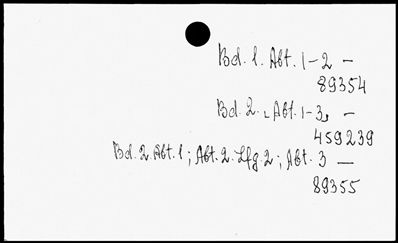 Bd. 1. Abt. 1-2 -
89354
Bd. 2., Abt. 1-3, -
459239
Bd. 2. Abt. 1; Abt. 2. Lfg. 2; Abt. 3 -
89355